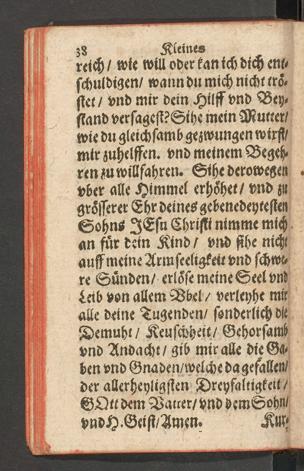 38 Kleines
reich / wie will oder kan ich dich ent-
schuldigen / wann du mich nicht trö-
stet / vnd mir dein Hilff vnd Bey-
stand versagest? Sihe mein Mutter /
wie du gleichsamb gezwungen wirst /
mir zuhelffen. vnd meinem Begeh-
ren zu willfahren. Sihe derowegen
vber alle Himmel erhöhet / vnd zu
grösserer Ehr deines gebenedeytesten
Sohns JEsu Christi nimme mich
an für dein Kind / vnd sihe nicht
auff meine Armseeligkeit vnd schwe-
re Sünden / erlöse meine Seel vnd
Leib von allem Vbel / verleyhe mir
alle deine Tugenden / sonderlich die
Demuht / Keuschheit / Gehorsamb
vnd Andacht / gib mir alle die Ga-
ben vnd Gnaden / welche da gefallen /
der allerheyligsten Dreyfaltigkeit /
GOtt dem Vatter / vnd dem Sohn /
vnd H. Geist / Amen. Kur-